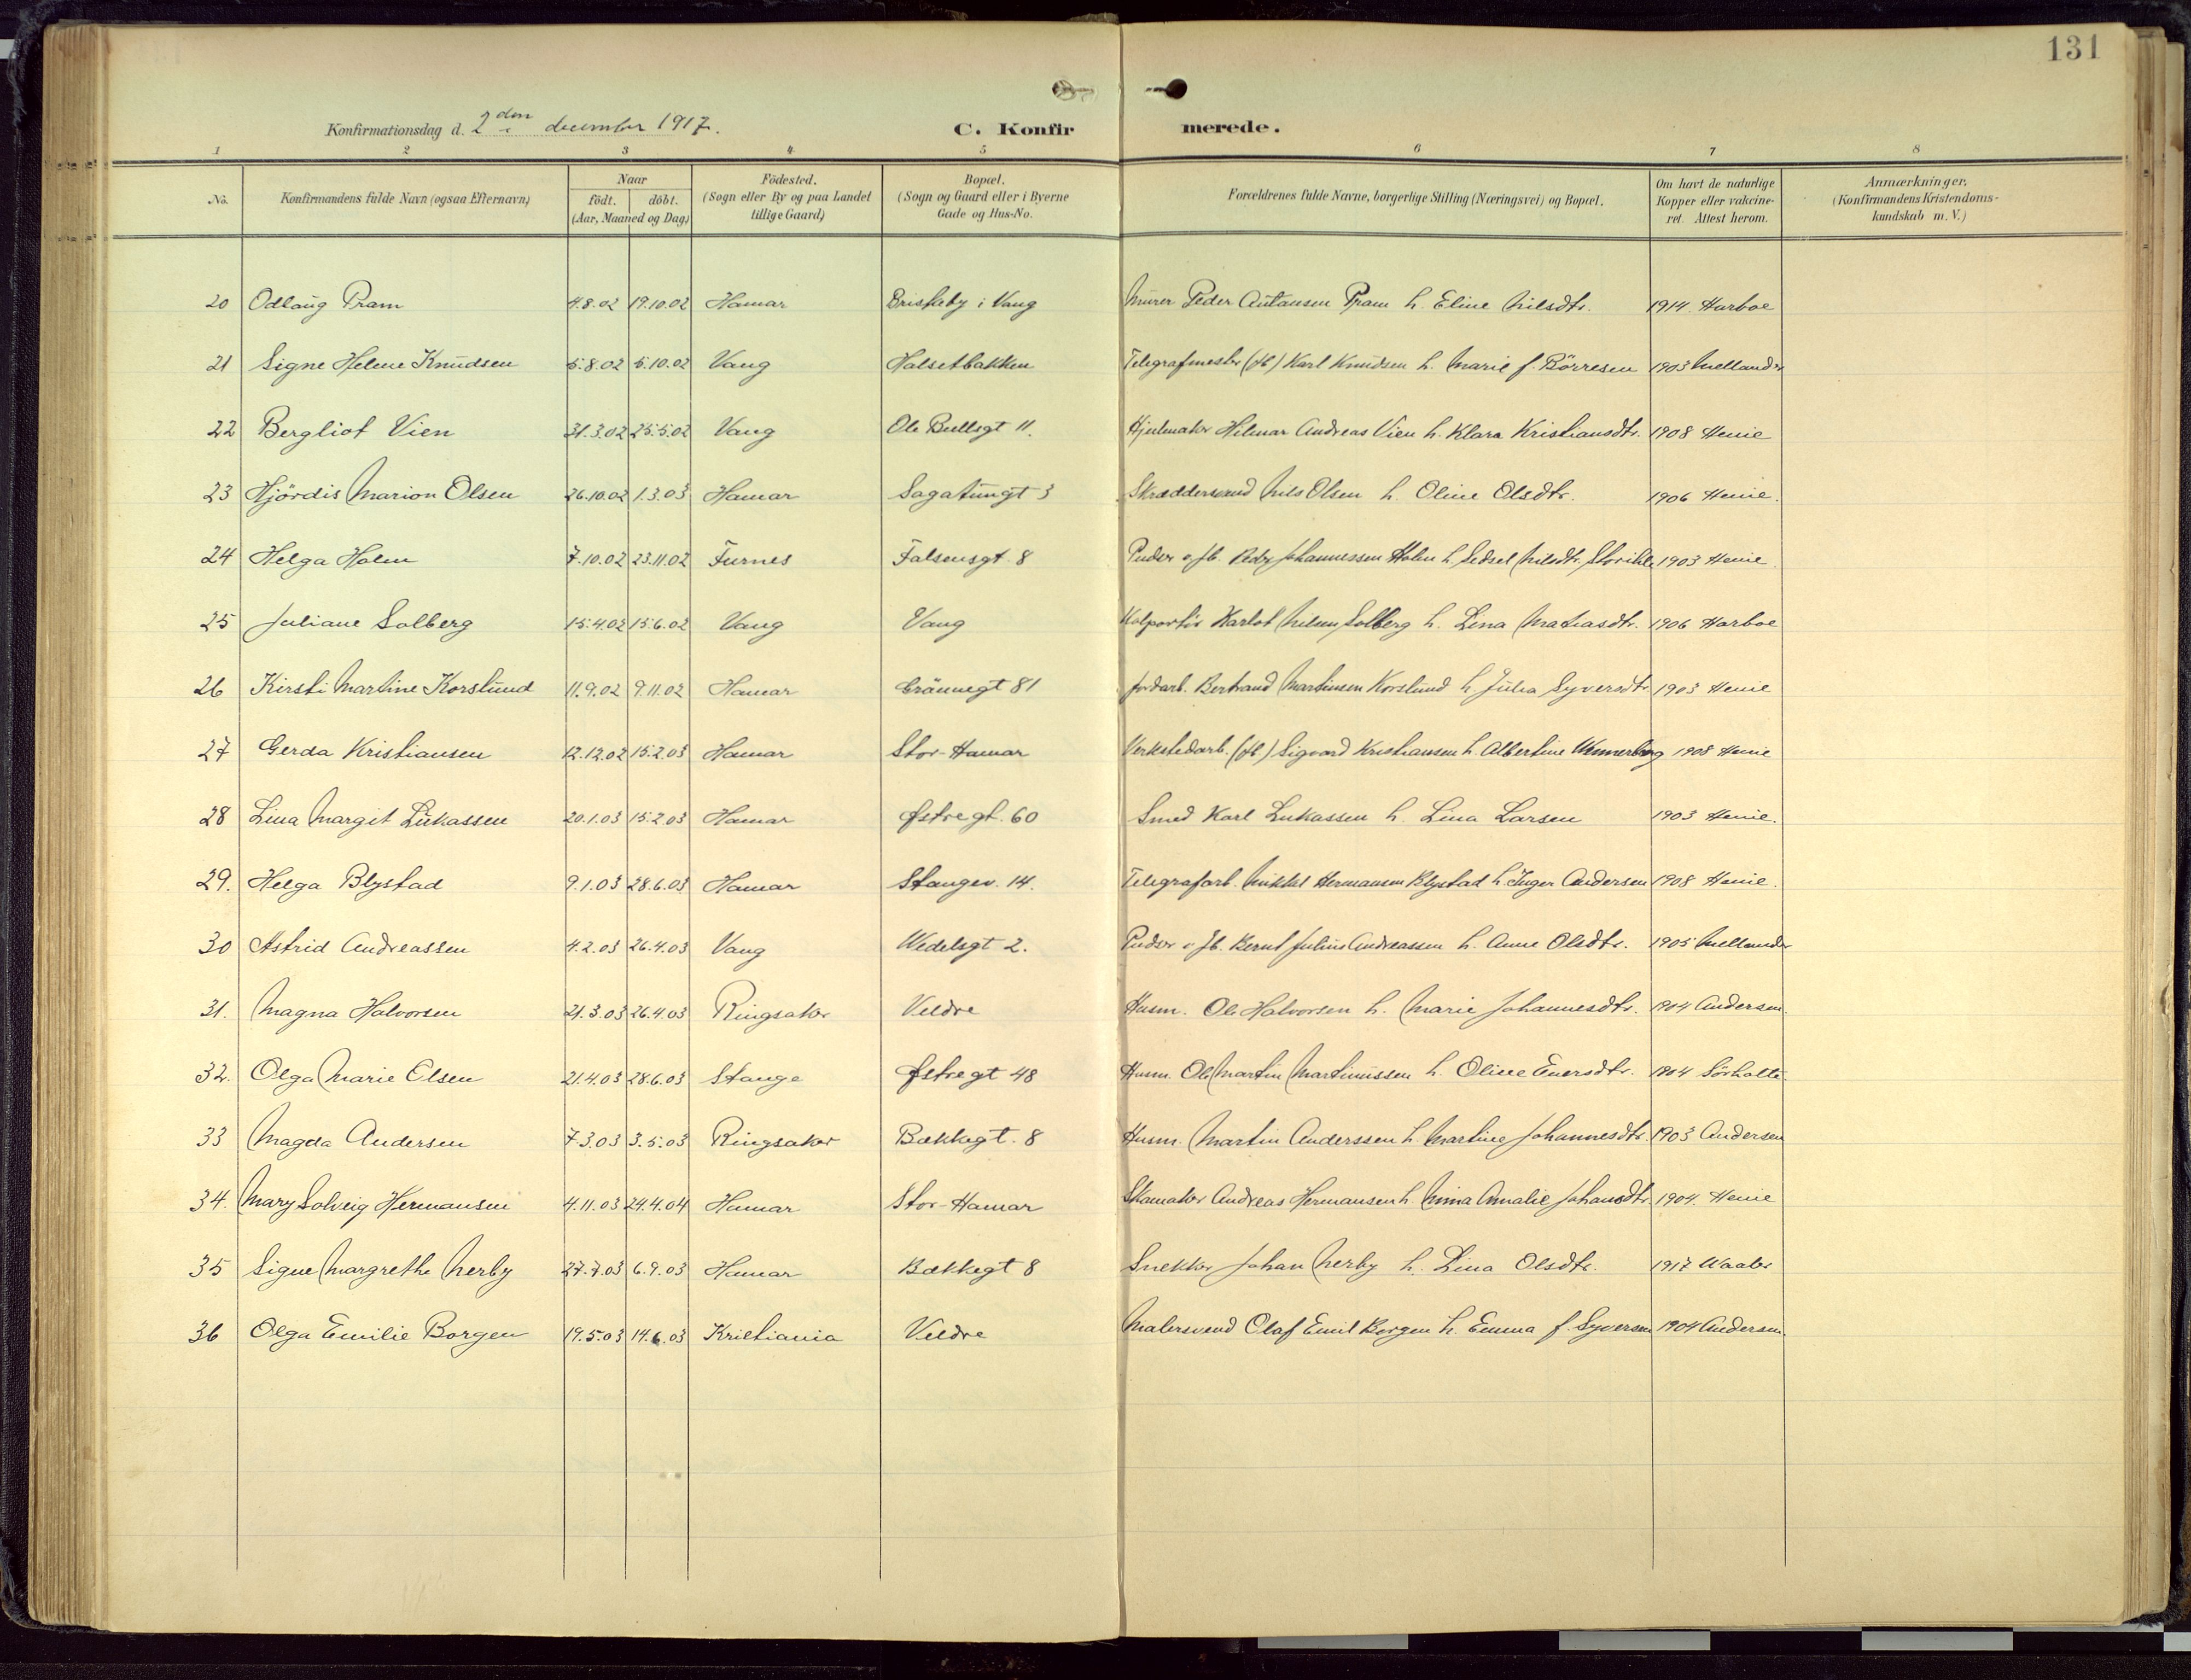 131
Konfirmationsdag d. 2den december 1917. C. Konfirmerede.
1 2 3 4 5 6 7 8
No. Konfirmandens fulde Navn (ogsaa Efternavn) Naar födt. döbt. (Aar, Maaned og Dag) Födested. (Sogn eller By og paa Landet tillige Gaard) Bopæl. (Sogn og Gaard eller i Byerne Gade og Hus-No. Forældrenes fulde Navne, borgerlige Stilling (Næringsvei) og Bopæl. Om havt de naturlige Kopper eller vakcineret. Attest herom. Anmærkninger. (Konfirmandens Kristendomskundskab m. V.)
20 Odlaug Pram 4.8.02 19.10.02 Hamar Briskeby i Vang Murer Peder Antonsen Pram h. Eline Nilsdtr. 1914. Harboe
21 Signe Helene Knudsen 5.8.02 5.10.02 Vang Halsetbakken Telegrafmester (jb) Karl Knudsen h. Marie f. Börresen 1903 Mellander
22 Bergliot Vien 31.3.02 25.5.02 Vang Ole Bullsgt 11. Hjulmaker Hilmar Andreas Vien h. Klara Kristiansdtr. 1908 Henie
23 Hjördis Marion Olsen 26.10.02 1.3.03 Hamar Sagatungt 3 Skræddersvend Nils Olsen h. Oline Olsdtr. 1906 Henie.
24 Helga Holm 7.10.02 23.11.02 Furnes Falsensgt. 8 Pudser v. jb. Peder Johannessen Holm h. Sedsel Nilsdtr. 1903 Henie.
25 Juliane Solberg 15.4.02 15.6.02 Vang Vang Kolportör Karlot Nilsen Solberg h. Lina Matiasdtr. 1906 Harboe
26 Kirsti Martine Korslund 11.9.02 9.11.02 Hamar Grönnegt 81 Jordarb. Bertrand Martinsen Korslund h. Julia Syversdtr. 1903 Henie
27 Gerda Kristiansen 12.12.02 15.2.03 Hamar Stor-Hamar Verkstedarb. (jb) Sigvard Kristiansen h. Albertine Wennerberg 1908 Henie
28 Lina Margit Lukassen 20.1.03 15.2.03 Hamar Østregt. 60 Smed Karl Lukassen h. Lina Larsen 1903 Henie.
29. Helga Blystad 9.1.03 28.6.03 Hamar Stangev. 14. Telegrafarb. Mikkel Hermansen Blystad h. Inger Andersen 1908 Henie.
30 Astrid Andreassen 4.2.03 26.4.03 Vang Wedelsgt 2. Pudser v. jb. Bernt Julius Andreassen h. Anne Olsdtr. 1905 Mellander
31. Magna Halvorsen 21.3.03 26.4.03 Ringsaker Veldre Husm. Ole Halvorsen h. Marie Johannesdtr. 1904 Andersen.
32. Olga Marie Olsen 21.4.03 28.6.03 Stange Østregt 48 Husm. Ole Martin Martinussen h. Oline Evensdtr. 1904 Sörholte
33 Magda Andersen 7.3.03 3.5.03 Ringsaker Bækkegt. 8 Husm. Martin Anderssen h. Martine Johannesdtr. 1903 Andersen
34. Mary Solveig Hermansen 4.11.03 24.4.04 Hamar Stor-Hamar Skomaker Andreas Hermansen h. Mina Amalie Johansdtr. 1904. Henie
35 Signe Margrethe Nerby 27.7.03 6.9.03 Hamar Bækkegt 8 Snekker Johan Nerby h. Lina Olsdtr. 1917 Waaler
36 Olga Emilie Borgen 19.5.03 14.6.03 Kristiania Veldre Malersvend Olaf Emil Borgen h. Emma f. Syversen 1904 Andersen.